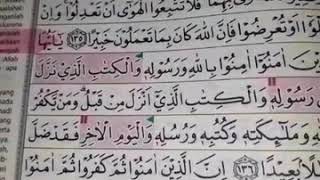 بِهِمَا فَلَا تَتَّبِعُوا الْهَوٰٓى اَنْ تَعْدِلُوْا وَاِنْ
اَوْ تُعْرِضُوْا فَاِنَّ اللّٰهَ كَانَ بِمَا تَعْمَلُوْنَ خَبِيْرًا ١٣٥ يٰٓاَيُّهَا
اٰمَنُوْٓا اٰمِنُوْا بِاللّٰهِ وَرَسُوْلِهٖ وَالْكِتٰبِ الَّذِيْ نَزَّلَ
رَسُوْلِهٖ وَالْكِتٰبِ الَّذِيْٓ اَنْزَلَ مِنْ قَبْلُ وَمَنْ يَّكْفُرْ
وَمَلٰٓئِكَتِهٖ وَكُتُبِهٖ وَرُسُلِهٖ وَالْيَوْمِ الْاٰخِرِ فَقَدْ ضَلَّ
بَعِيْدًا ١٣٦ اِنَّ الَّذِيْنَ اٰمَنُوْا ثُمَّ كَفَرُوْا ثُمَّ اٰمَنُوْا
Allah
: apa
yang